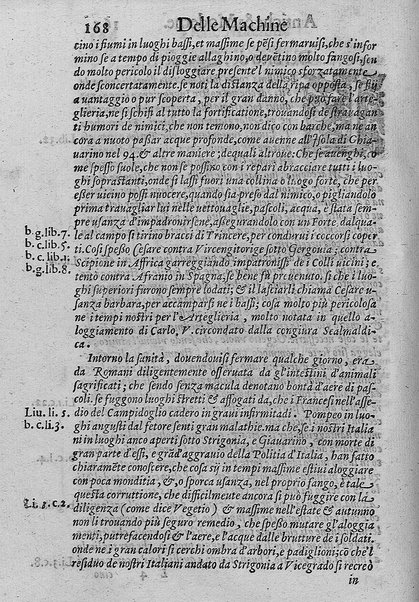 168 Delle Machine
cino i fiumi in luoghi bassi, et massime se pẽsi fermaruisi, che s'infor
mino se a tempo di pioggie allaghino, o deuẽtino molto fangosi, sen
do molto pericolo il disloggiare presente'l nimico sforzatamente
onde sconcertatamente. Se noti la distanza della ripa opposta, se sia
auantaggio o pur scoperta, per il gran danno, che può fare l'arte-
glieria, ne si schifi al tutto la fortificatione, trouandosi de strauagan
ti humori de nimici, che non temono, non dico con barche, ma ne an
cora a nuoto passar acque profonde, come auenne all'Isola di Ghia
uarino nel 94. & altre maniere; dequali altroue. Che se auenghi, co
me spesso suole, che non se possino con i repari abracciare tutti i luo-
ghi soprastanti, onde si lassi fuori una collina o luogo forte, che per
esser uicino possi nuocere, quando sia preso dal nimico, o pigliandolo
prima trauagliar lui nelle uettouaglie, pascoli, acqua, è stata sem
pre usanza d'impadronirsene, assegurandolo con un Forte dalqua-
le al campo si tirino bracci di Trincere, per condurui i soccorsi coper
b. g. lib. 7.
b. c. lib. 5.
b. c. lib. 1.
b. g. lib. 8.
ti. Cosi spesso Cesare contra Vircengitorige sotto Gergouia; contra
Scipione in Affrica garreggiando impatronissi de i Colli uicini; e
tentò contra Afranio in Spagna, se bene fu preuenuto. si che i luo-
ghi superiori furono sempre lodati; & il lasciarli chiama Cesare u-
sanza barbara, per accamparsi ne i bassi; cosa molto più pericolosa
ne i tempi nostri per l'Arteglieria, molto notata in quello a-
loggiamento di Carlo. V. circondato dalla congiura Scalmaldi-
ca.
Intorno la sanità, douendouisi fermare qualche giorno, era
da Romani diligentemente osseruata da gl'intestini d'animali
sagrificati; che sendo senza macula denotano bontà d'aere di pas-
coli. se fuggono luoghi stretti & affogati da, che i Francesi nell'asse-
Liu. li. 5.
b. c. li. 3.
dio del Campidoglio cadero in graui infirmitadi. Pompeo in luo-
ghi angusti dal fetore senti gran malathie. ma che, se i nostri Italia
ni in luoghi anco aperti sotto Strigonia, e Giauarino, con morte di
gran parte d'essi, e grãd'aggrauio della Politia d'Italia, han fatto
chiaramẽte conoscere, che cosa sij in tempi massime estiui aloggiare
con poca monditia, &, o sporca usanza, nel proprio fango. è tale
li. 3. c. 2.
questa corruttione, che difficilmente ancora si può fuggire con la
diligenza (come dice Vegetio) & massime nell'estate & autunno
non li trouando più seguro remedio, che spesso mutare gl'aloggia
menti, putrefacendosi & l'aere, e l'acque dalle brutture de i soldati.
onde ne i gran calori si cerchi ombra d'arbori, e padiglioni; cõ che'l
residuo de nostri Italiani andato da Strigonia a Vicegrado si recreò
in